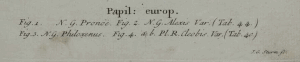 Papil: europ.
Fig. 1. N. G. Pronoë. Fig. 2. N. G. Alexis Var. (Tab. 44)
Fig. 3. N. G. Philoxenus. Fig. 4. a. b. Pl. R. Cleobis Var. (Tab 40)